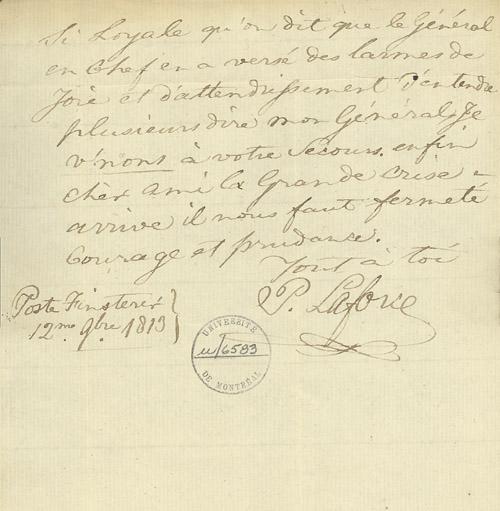 Si Loyale qu'on dit que le Général
en Chef en a versé des larmes de
Joie et d'attendrissement J'entendu
plusieurs dire mon Général Je
v'nons à votre Secours. enfin
cher Ami la Grande Crise -
arrive il nous faut fermeté
Courage et prudance.
Tout à toi
P. Laforce
Poste Finsterer
12me 9bre 1813
UNIVERSITÉ
u/6583
DE MONTRÉAL